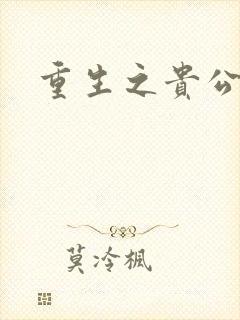 重生之貴公
莫冷楓